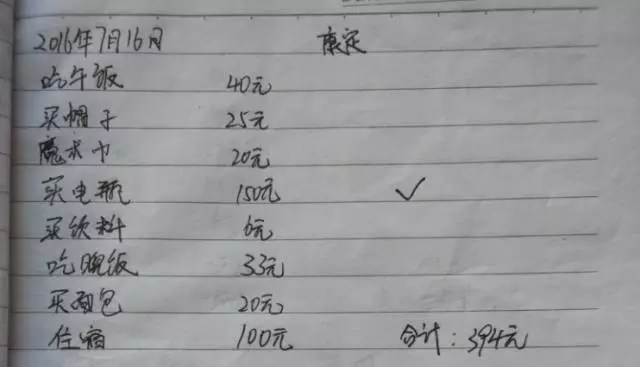 2016年7月16日 康定
吃午饭 40元
买帽子 25元
魔术巾 20元
买电瓶 150元 ✓
买饮料 6元
吃晚饭 33元
买面包 20元
住宿 100元 合计：394元